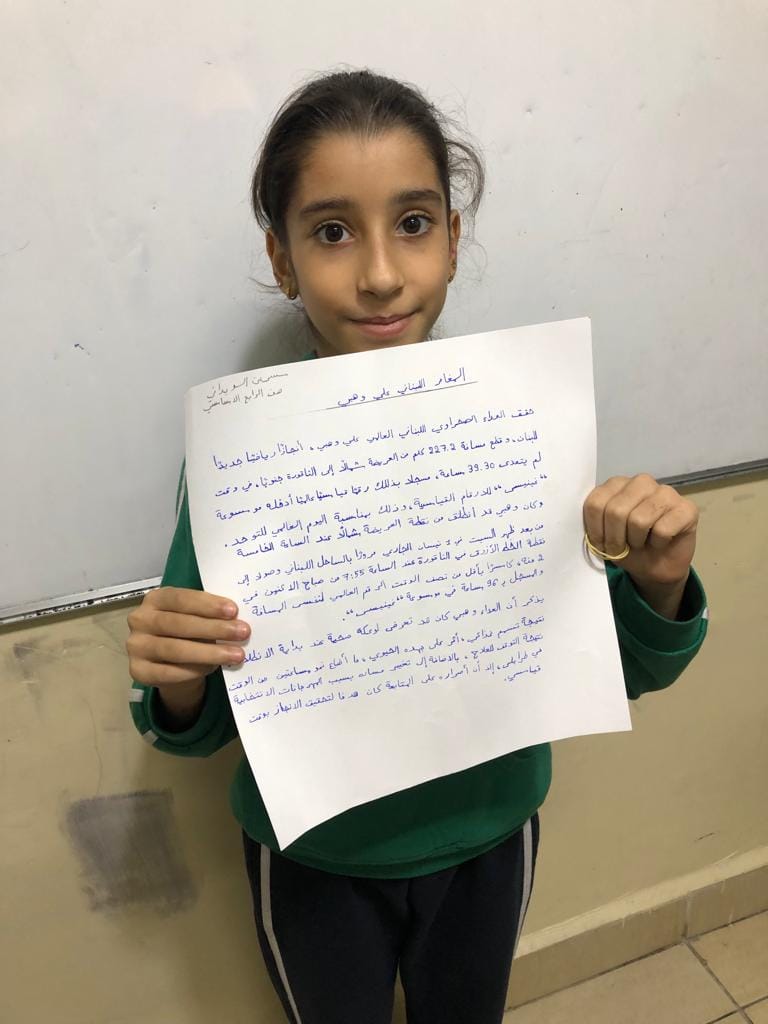 السويداني
صف الرابع الابتدائي
المغامر اللبناني علي وهبي
حقق العداء الصحراوي اللبناني العالمي علي وهبي، أنجازًا رياضيًا جديدًا
للبنان، وقطع مسافة 227.2 كلم من العريضة شمالًا إلى الناقورة جنوبًا، في وقت
لم يتعدى 39.30 ساعة، مسجلا بذلك رقمًا قياسيًا عالميًا أدخله موسوعة
“غينيس” للارقام القياسية، وذلك بمناسبة اليوم العالمي للتوحد.
وكان وهبي قد أنطلق من نقطة العريضة شمالًا عند الساعة الخامسة
من بعد ظهر السبت في نيسان الجاري مرورًا بالساحل اللبناني وصولا إلى
نقطة الخط الأزرق في الناقورة عند الساعة 7:55 من صباح الاثنين في
2 منه، كاسرًا بأقل من نصف الوقت الرقم العالمي لنفس المسافة
والمسجل بـ 96 ساعة في موسوعة “غينيس”.
يذكر أن العداء وهبي كان قد تعرض لوعكة صحية عند بداية الانطلاق
نتيجة تسمم غذائي، أثر على جهده الحيوي، ما أضاع نحو ساعتين من الوقت
نتيجة التوقف للعلاج، بالاضافة إلى تغيير مساره بسبب المهرجانات الانتخابية
في طرابلس، إلا أن أصراره على المتابعة كان هدفا لتحقيق الانجاز بوقت
قياسي.